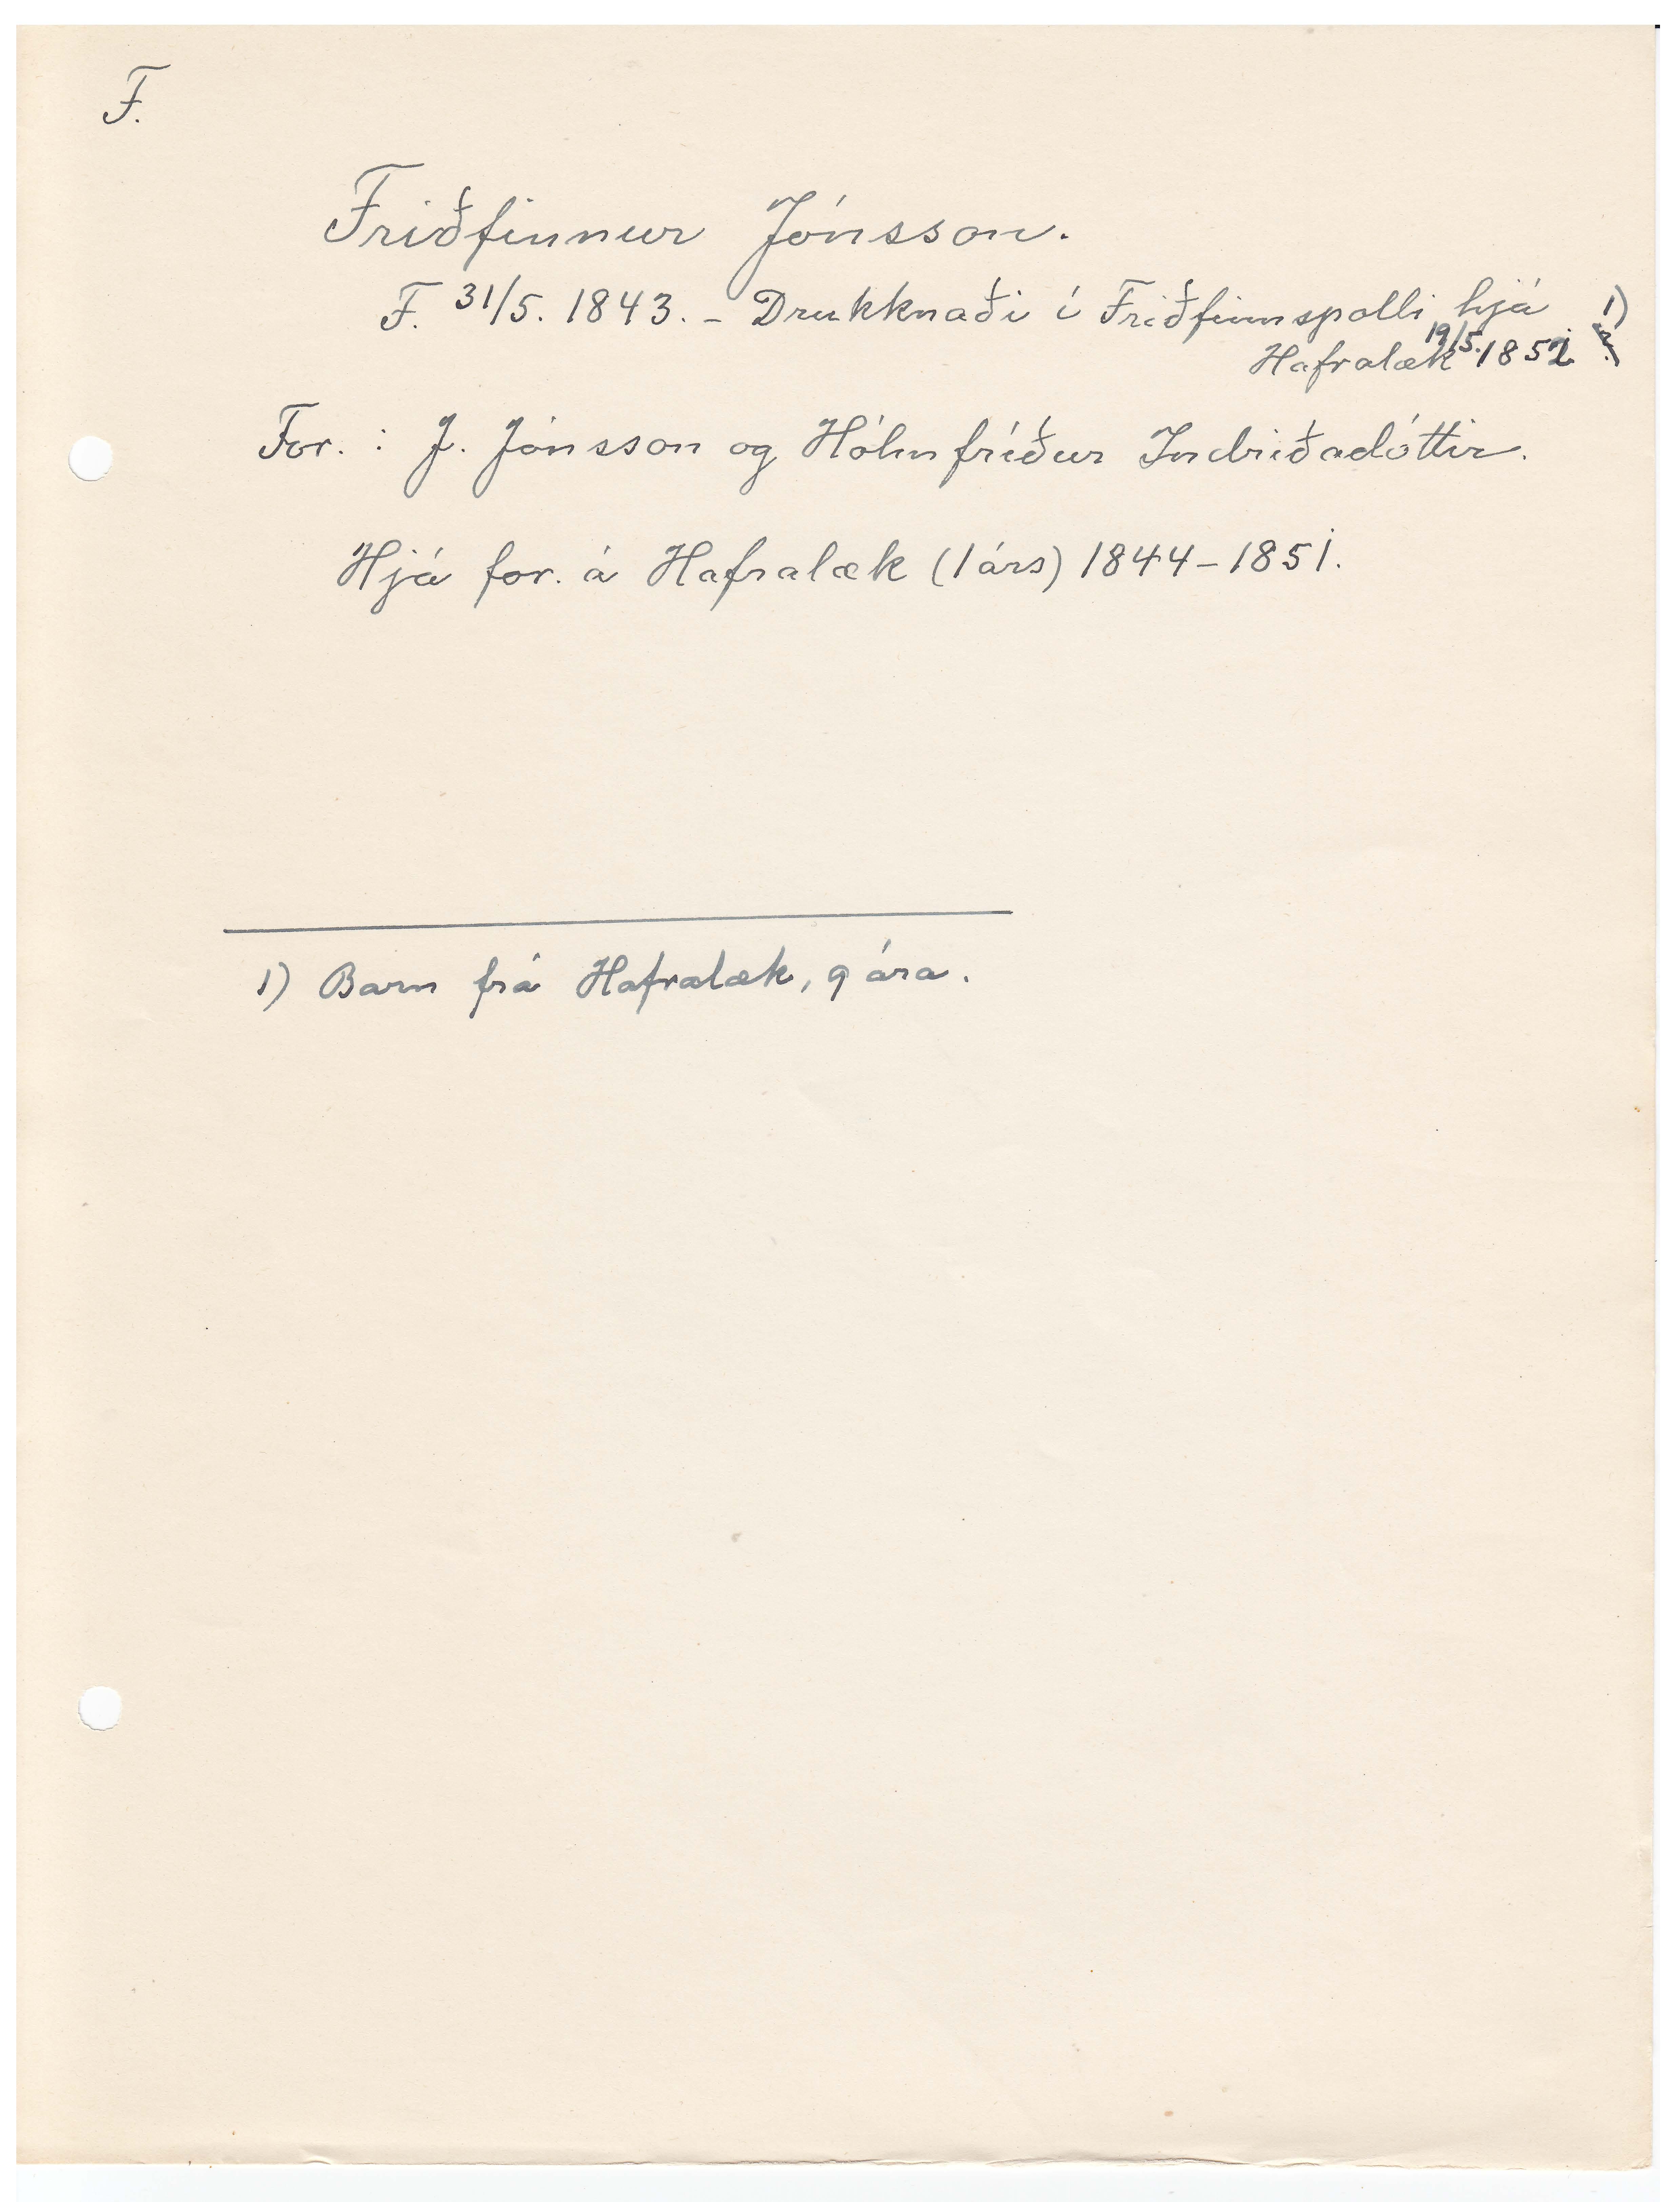 F.
Friðfinnur Jónsson.
F. 31/5. 1843. – Drukknaði í Friðfinnspolli hjá 1)
Hafralæk 19/5. 1852
For. : J. Jónsson og Hólmfríður Indriðadóttir.
Hjá for. á Hafralæk (1 árs) 1844–1851.
1) Barn frá Hafralæk, 9 ára.